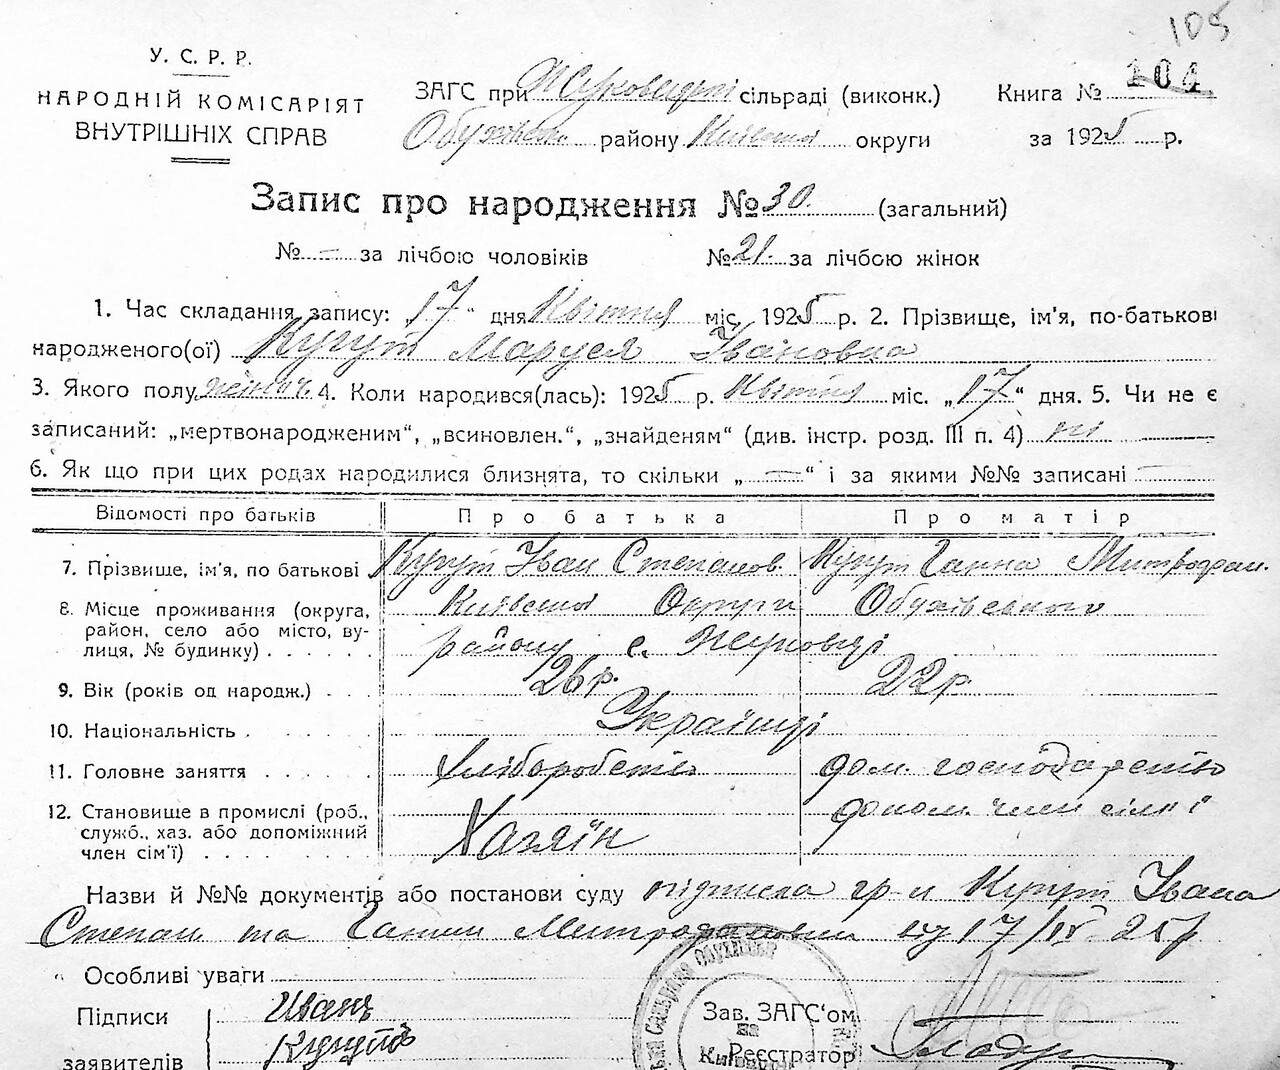 105
У. С. Р. Р.
НАРОДНІЙ КОМІСАРІЯТ
ВНУТРІШНІХ СПРАВ
ЗАГС при сільраді (виконк.)
Книга № 104
району Київської округи
за 1925 р.
Запис про народження № 30. (загальний)
№ — за лічбою чоловіків № 21. за лічбою жінок
1. Час складання запису: „17“ дня Квітня міс. 1925 р. 2. Прізвище, ім'я, по-батькові
народженого(ої) Кугут Маруся Івановна
3. Якого полу жіноч. 4. Коли народився(лась): 1925 р. Квітня міс. „17“ дня. 5. Чи не є
записаний: „мертвонародженим“, „всиновлен.“, „знайденям“ (див. інстр. розд. III п. 4) ні
6. Як що при цих родах народилися близнята, то скільки „—“ і за якими №№ записані —
Відомості про батьків Про батька Про матір
7. Прізвище, ім'я, по батькові Кугут Іван Степанов. Кугут Ганна Митрофан.
8. Місце проживання (округа, Київської Округи Обухівського
район, село або місто, ву- району с.
лиця, № будинку)
9. Вік (років од народж.) 26 р. 22 р.
10. Національність Українці
11. Головне заняття Хліборобство дом. господарство
12. Становище в промислі (роб., допом. член сім'ї
служб., хаз. або допоміжний Хазяїн
член сім'ї)
Назви й №№ документів або постанови суду підписка гр-н Кугут Івана
Степан та Ганни Митрофановни від 17/IV 25 р
Особливі уваги
Підписи Иванъ
заявителів Кугутъ
Зав. ЗАГС'ом
Реєстратор